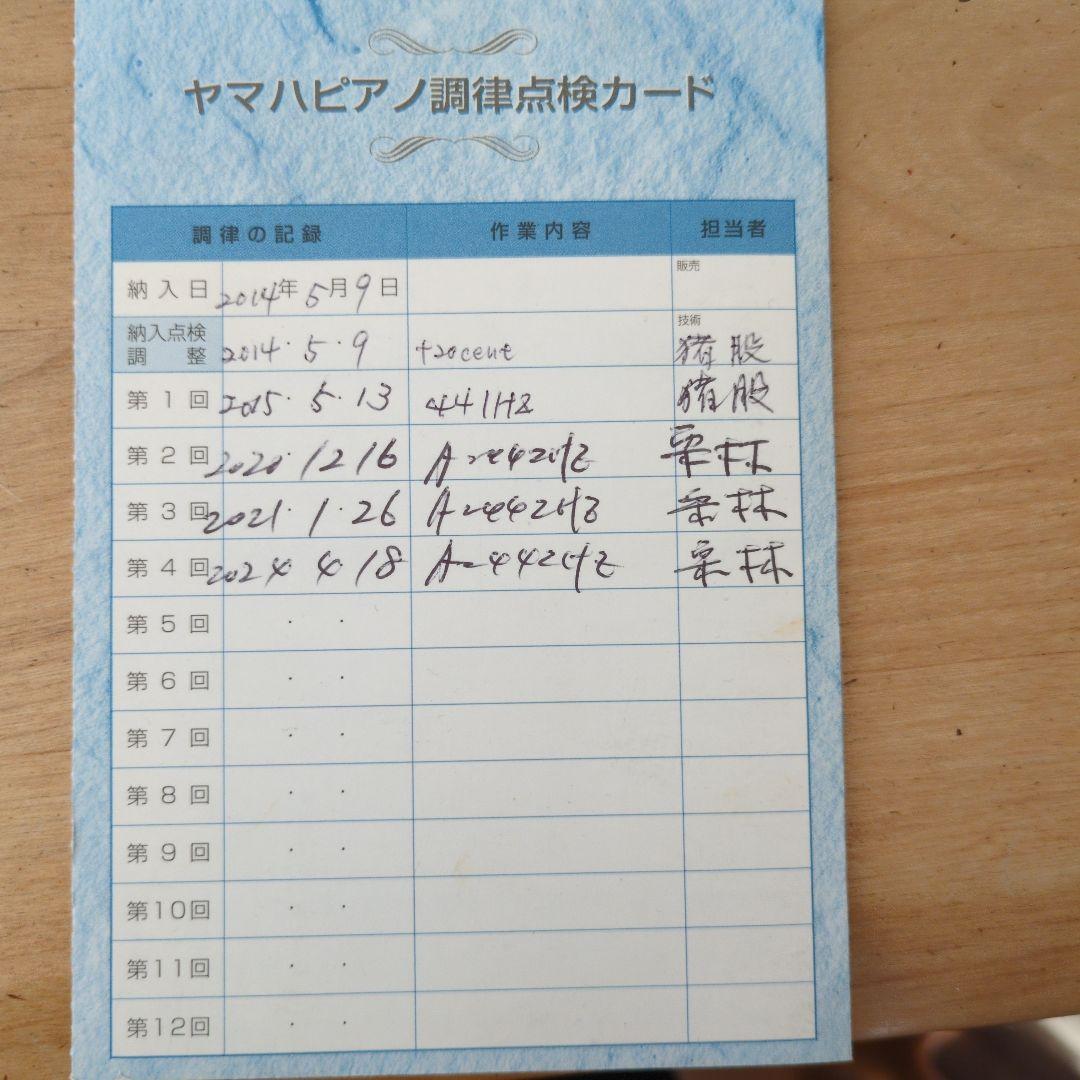 ヤマハピアノ調律点検カード
調律の記録 作業内容 担当者
納入日 2014年5月9日 販売
納入点検調整 2014・5・9 +20cent 技術 猪股
第1回 2015・5・13 441Hz 猪股
第2回 2020・12 16 A=442Hz 栗林
第3回 2021・1・26 A=442Hz 栗林
第4回 2024 4 18 A=442Hz 栗林
第5回 ・ ・
第6回 ・ ・
第7回 ・ ・
第8回 ・ ・
第9回 ・ ・
第10回 ・ ・
第11回 ・ ・
第12回 ・ ・